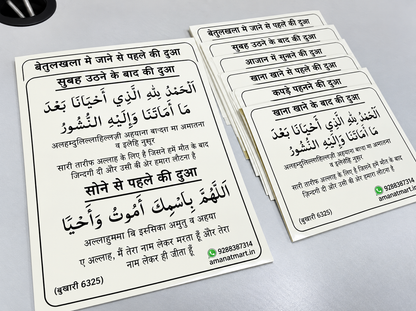 बेतुलखला मे जाने से पहले की दुआ
सुबह उठने के बाद की दुआ
اَلْحَمْدُ لِلّٰهِ الَّذِي أَحْيَانَا بَعْدَ
مَا أَمَاتَنَا وَإِلَيْهِ النُّشُورُ
अलहम्दुलिल्लाहिल्लज़ी अहयाना बाअदा मा अमातना
व इलैहि नुशूर
सारी तारीफ अल्लाह के लिए है जिसने हमें मौत के बाद
ज़िन्दगी दी और उसी की ओर हमारा लौटना है
सोने से पहले की दुआ
اَللّٰهُمَّ بِاسْمِكَ أَمُوتُ وَأَحْيَا
अल्लाहुममा बि इस्सिका अमुतु व अहया
ए अल्लाह, मैं तेरा नाम लेकर मरता हूँ और तेरा
नाम लेकर ही जीता हूँ
9288387314
amanatmart.in
(बुखारी 6325)
बेतुलखला मे जाने से पहले की दुआ
सुबह उठने के बाद की दुआ
आजान में सुनने की दुआ
खाना खाने से पहले की दुआ
कपड़े पहनने की दुआ
खाना खाने के बाद की दुआ
اَلْحَمْدُ لِلّٰهِ الَّذِي أَحْيَانَا بَعْدَ
مَا أَمَاتَنَا وَإِلَيْهِ النُّشُورُ
अलहम्दुलिल्लाहिल्लज़ी अहयाना बाअदा मा अमातना
व इलैहि नुशूर
सारी तारीफ अल्लाह के लिए है जिसने हमें मौत के बाद
ज़िन्दगी दी और उसी की ओर हमारा लौटना है
9288387314
amanatmart.in
(बुखारी 6325)